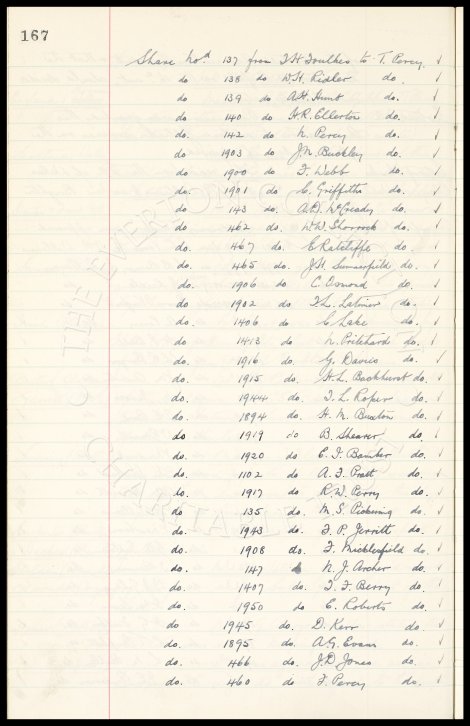 167
Share No.d 137 from J.H. Foulkes to T. Percy. √
do 138 do W.H. Ridler do. √
do 139 do A.H. Hunt do. √
do 140 do H.R. Ellerton do. √
do 142 do N. Percy do. √
do 1903 do J.N. Buckley do. √
do 1900 do F. Webb do. √
do. 1901 do C. Griffiths do. √
do 143 do. A.D. McGready do. √
do 462 do. W.W. Shorrock do. √
do. 467 do. E. Ratcliffe do. √
do. 465 do. J.H. Summerfield do. √
do. 1906 do C. Osmond do. √
do 1902 do T.L. Latimer do. √
do. 1406 do C. Lake do. √
do 1413 do N. Pritchard do. √
do. 1916 do. G. Davies do. √
do. 1915 do. H.L. Backhurst do. √
do. 1944 do. T.L. Roper do. √
do. 1894 do. H.M. Buxton do. √
do 1919 do B. Shearer do. √
do. 1920 do E.J. Bamber do. √
do. 1102 do A.J. Pratt do. √
do. 1917 do R.W. Perry do. √
do. 135 do. M.S. Pickering do. √
do. 1943 do. F.P. Jerritt do. √
do. 1908 do. F. Micklesfield do. √
do. 147 do N.J. Archer do. √
do. 1407 do. T.F. Berry do. √
do. 1950 do E. Roberts do. √
do 1945 do. D. Kerr do. √
do. 1895 do. A.G. Evans do. √
do. 466 do. J.D. Jones do. √
do. 460 do F. Percy do. √
THE EVERTON
CHARITABLE